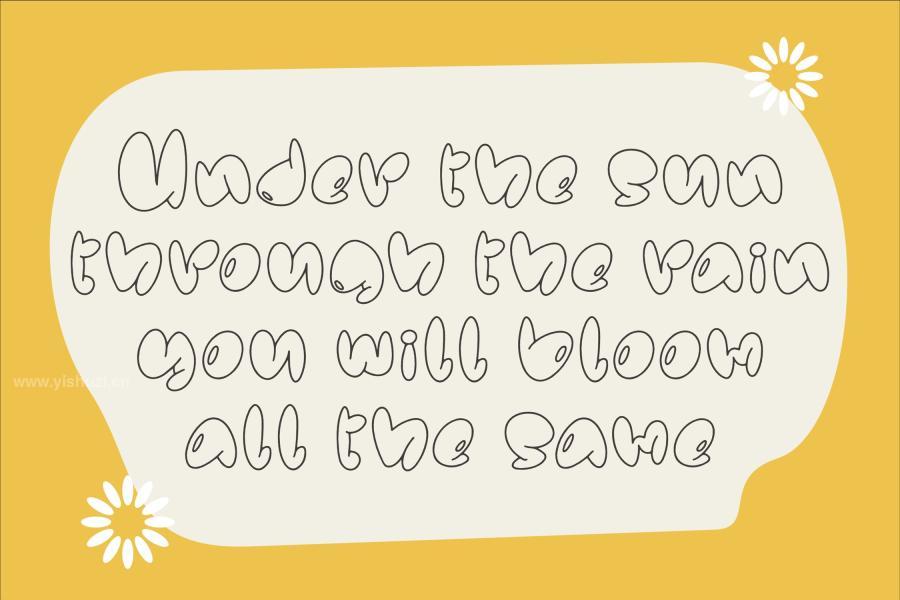 Under the sun
through the rain
you will bloom
all the same
www.yishuzi.cn